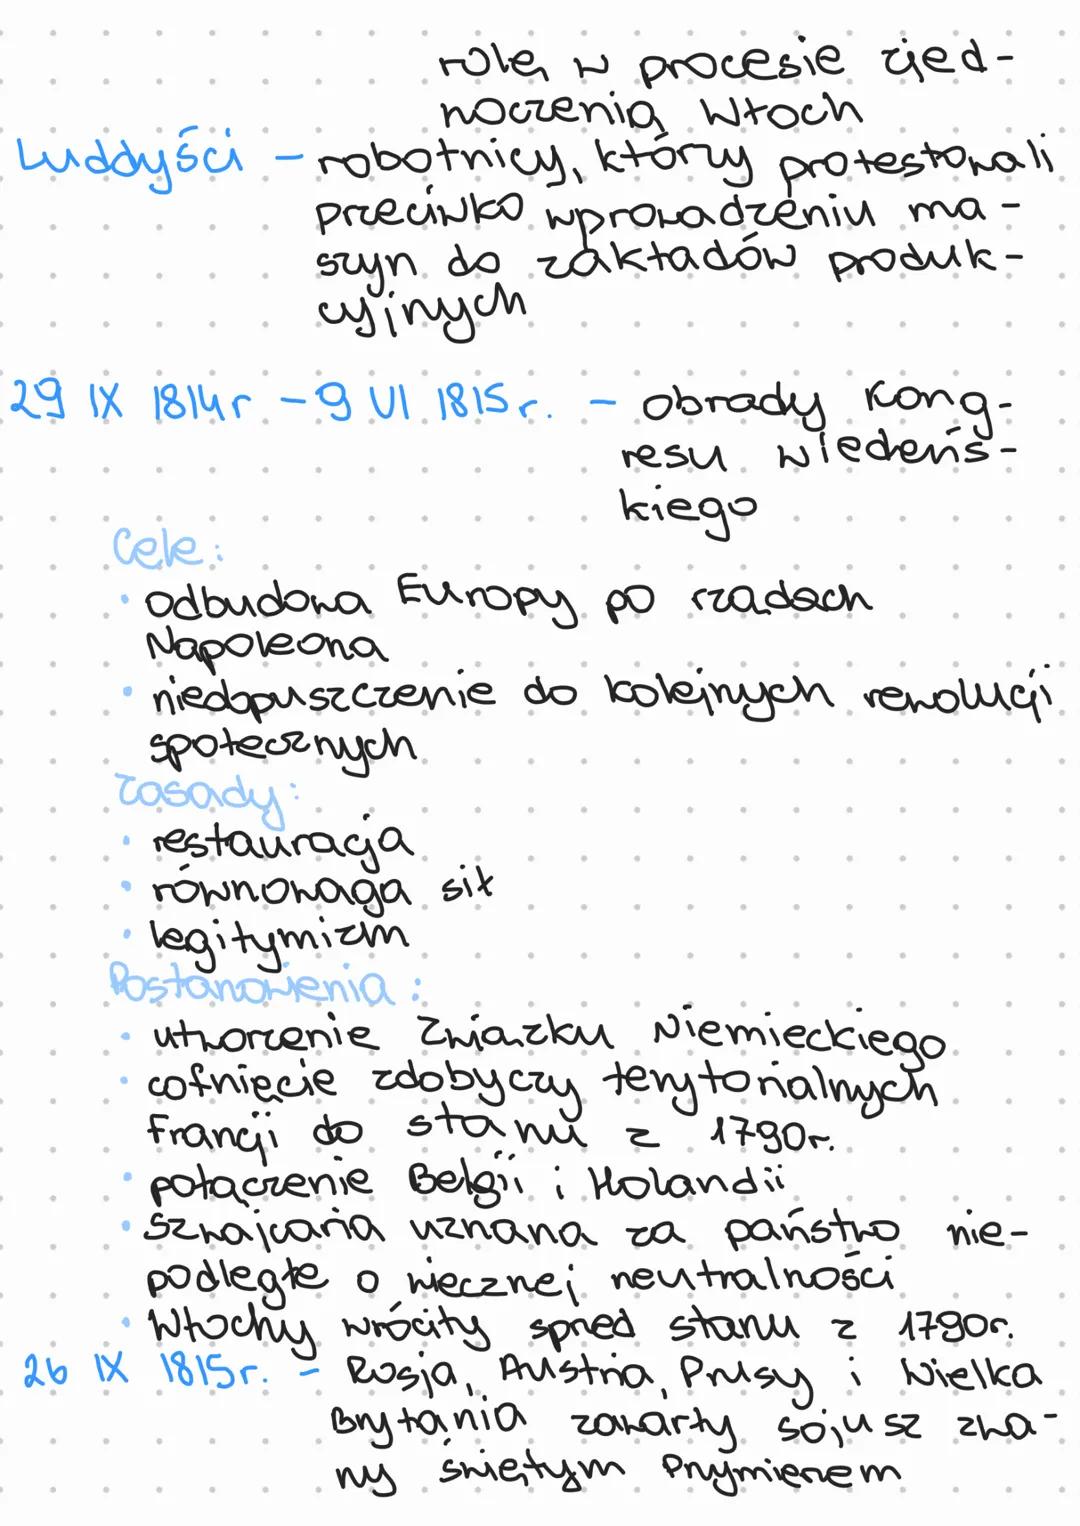 rolę w procesie zjed-
noczenia Włoch
Luddyści - robotnicy, który protestowali
przeciwko wprowadzeniu ma-
szyn do zakładów produk-
cyjnych
29 IX 1814r - 9 VI 1815r. - obrady kong-
resu wiedeńs-
kiego
Cele:
• odbudowa Europy po rządach
Napoleona
• niedopuszczenie do kolejnych rewolucji
społecznych
Zasady:
• restauracja
• równowaga sił
• legitymizm
Postanowienia:
• utworzenie Związku Niemieckiego
• cofnięcie zdobyczy terytorialnych
Francji do stanu z 1790r.
• połączenie Belgii i Holandii
• Szwajcaria uznana za państwo nie-
podległe o wiecznej neutralności
• Włochy wróciły spred stanu z 1790r.
26 IX 1815r. - Rosja, Austria, Prusy i Wielka
Brytania zawarły sojusz zwa-
ny świętym Przymierzem